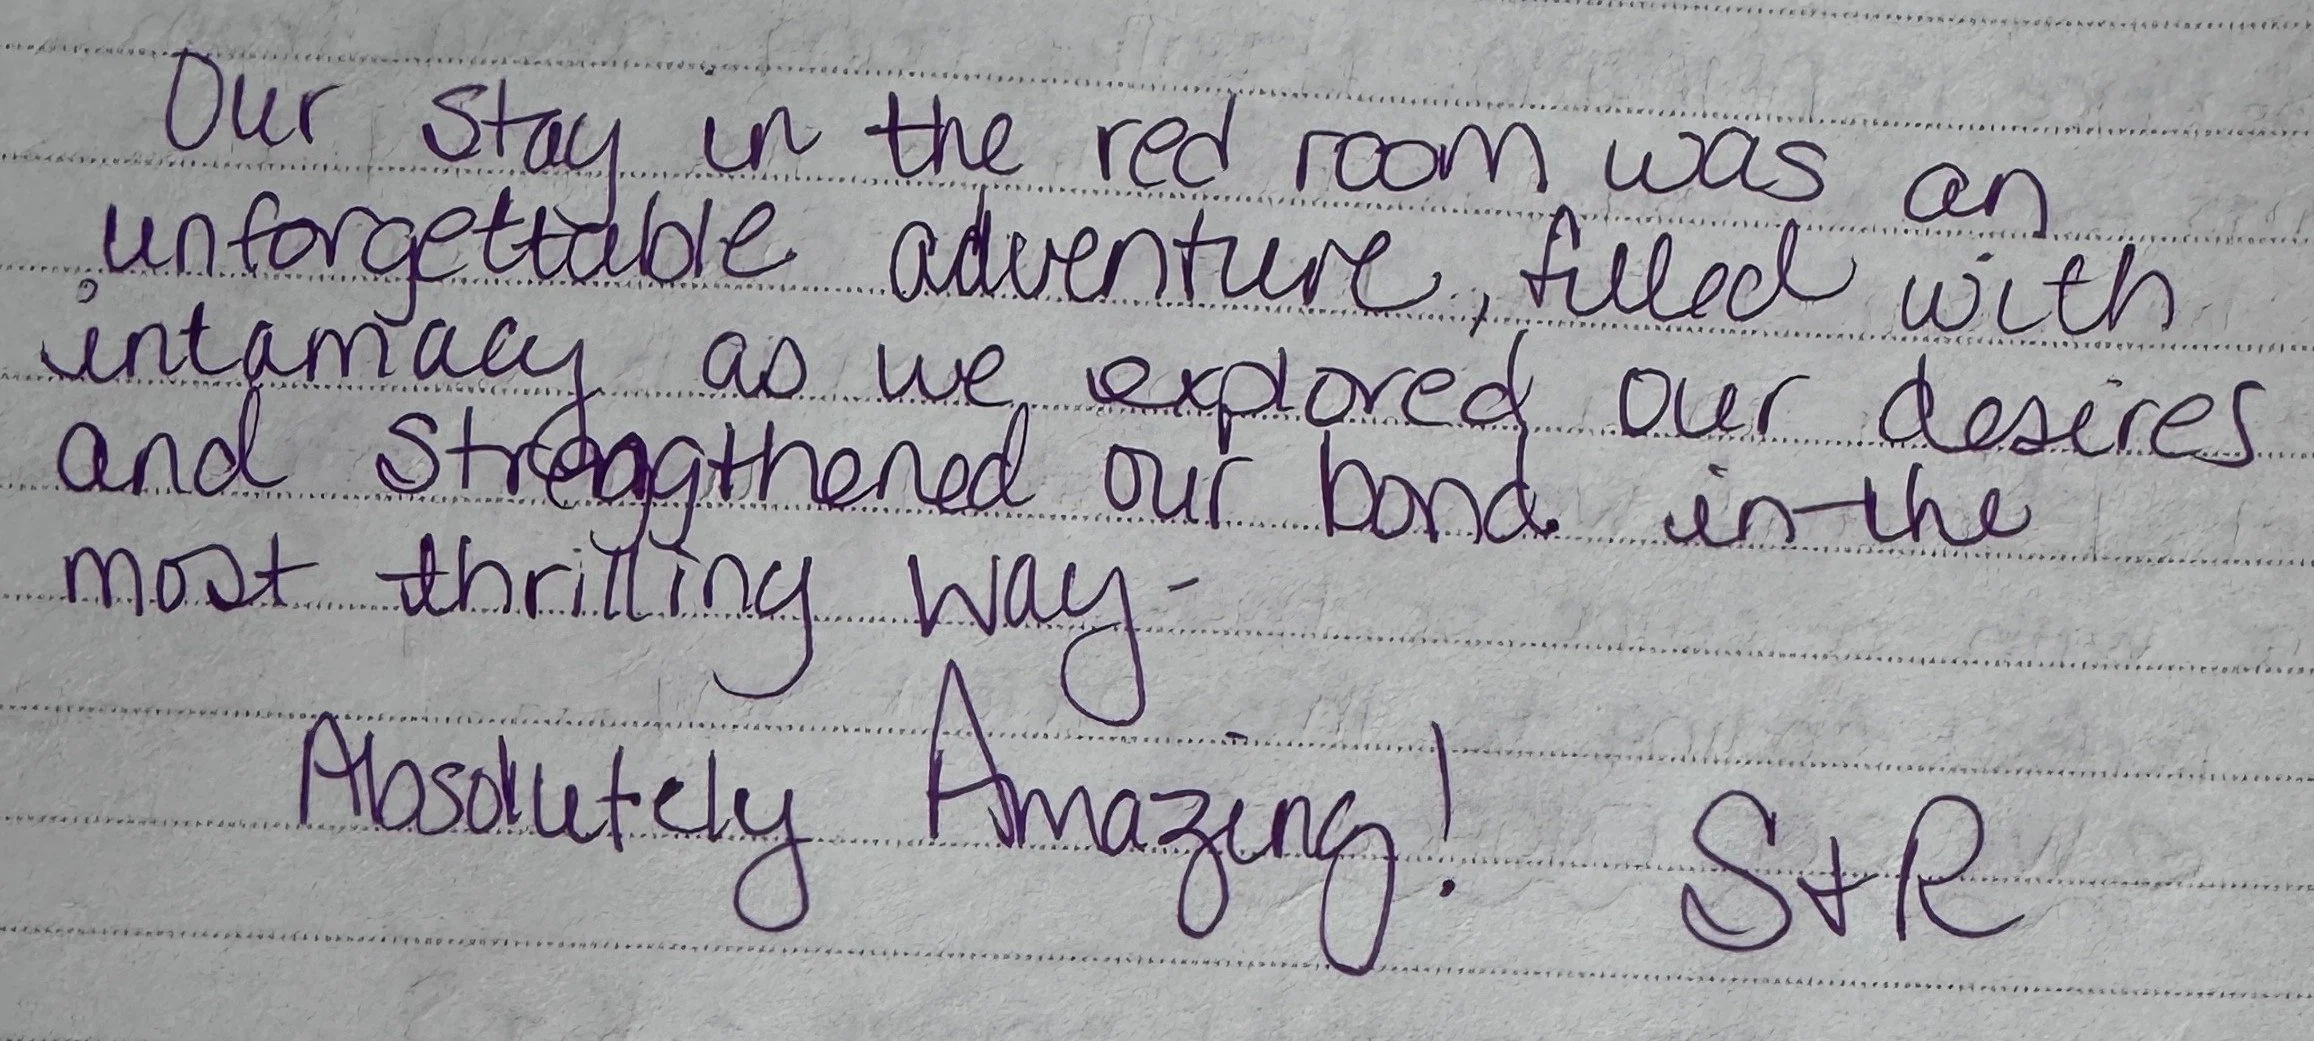 Our stay in the red room was an
unforgettable adventure, filled with
intamacy as we explored our desires
and strengthened our bond. in the
most thrilling way-
Absolutely Amazing! S+R